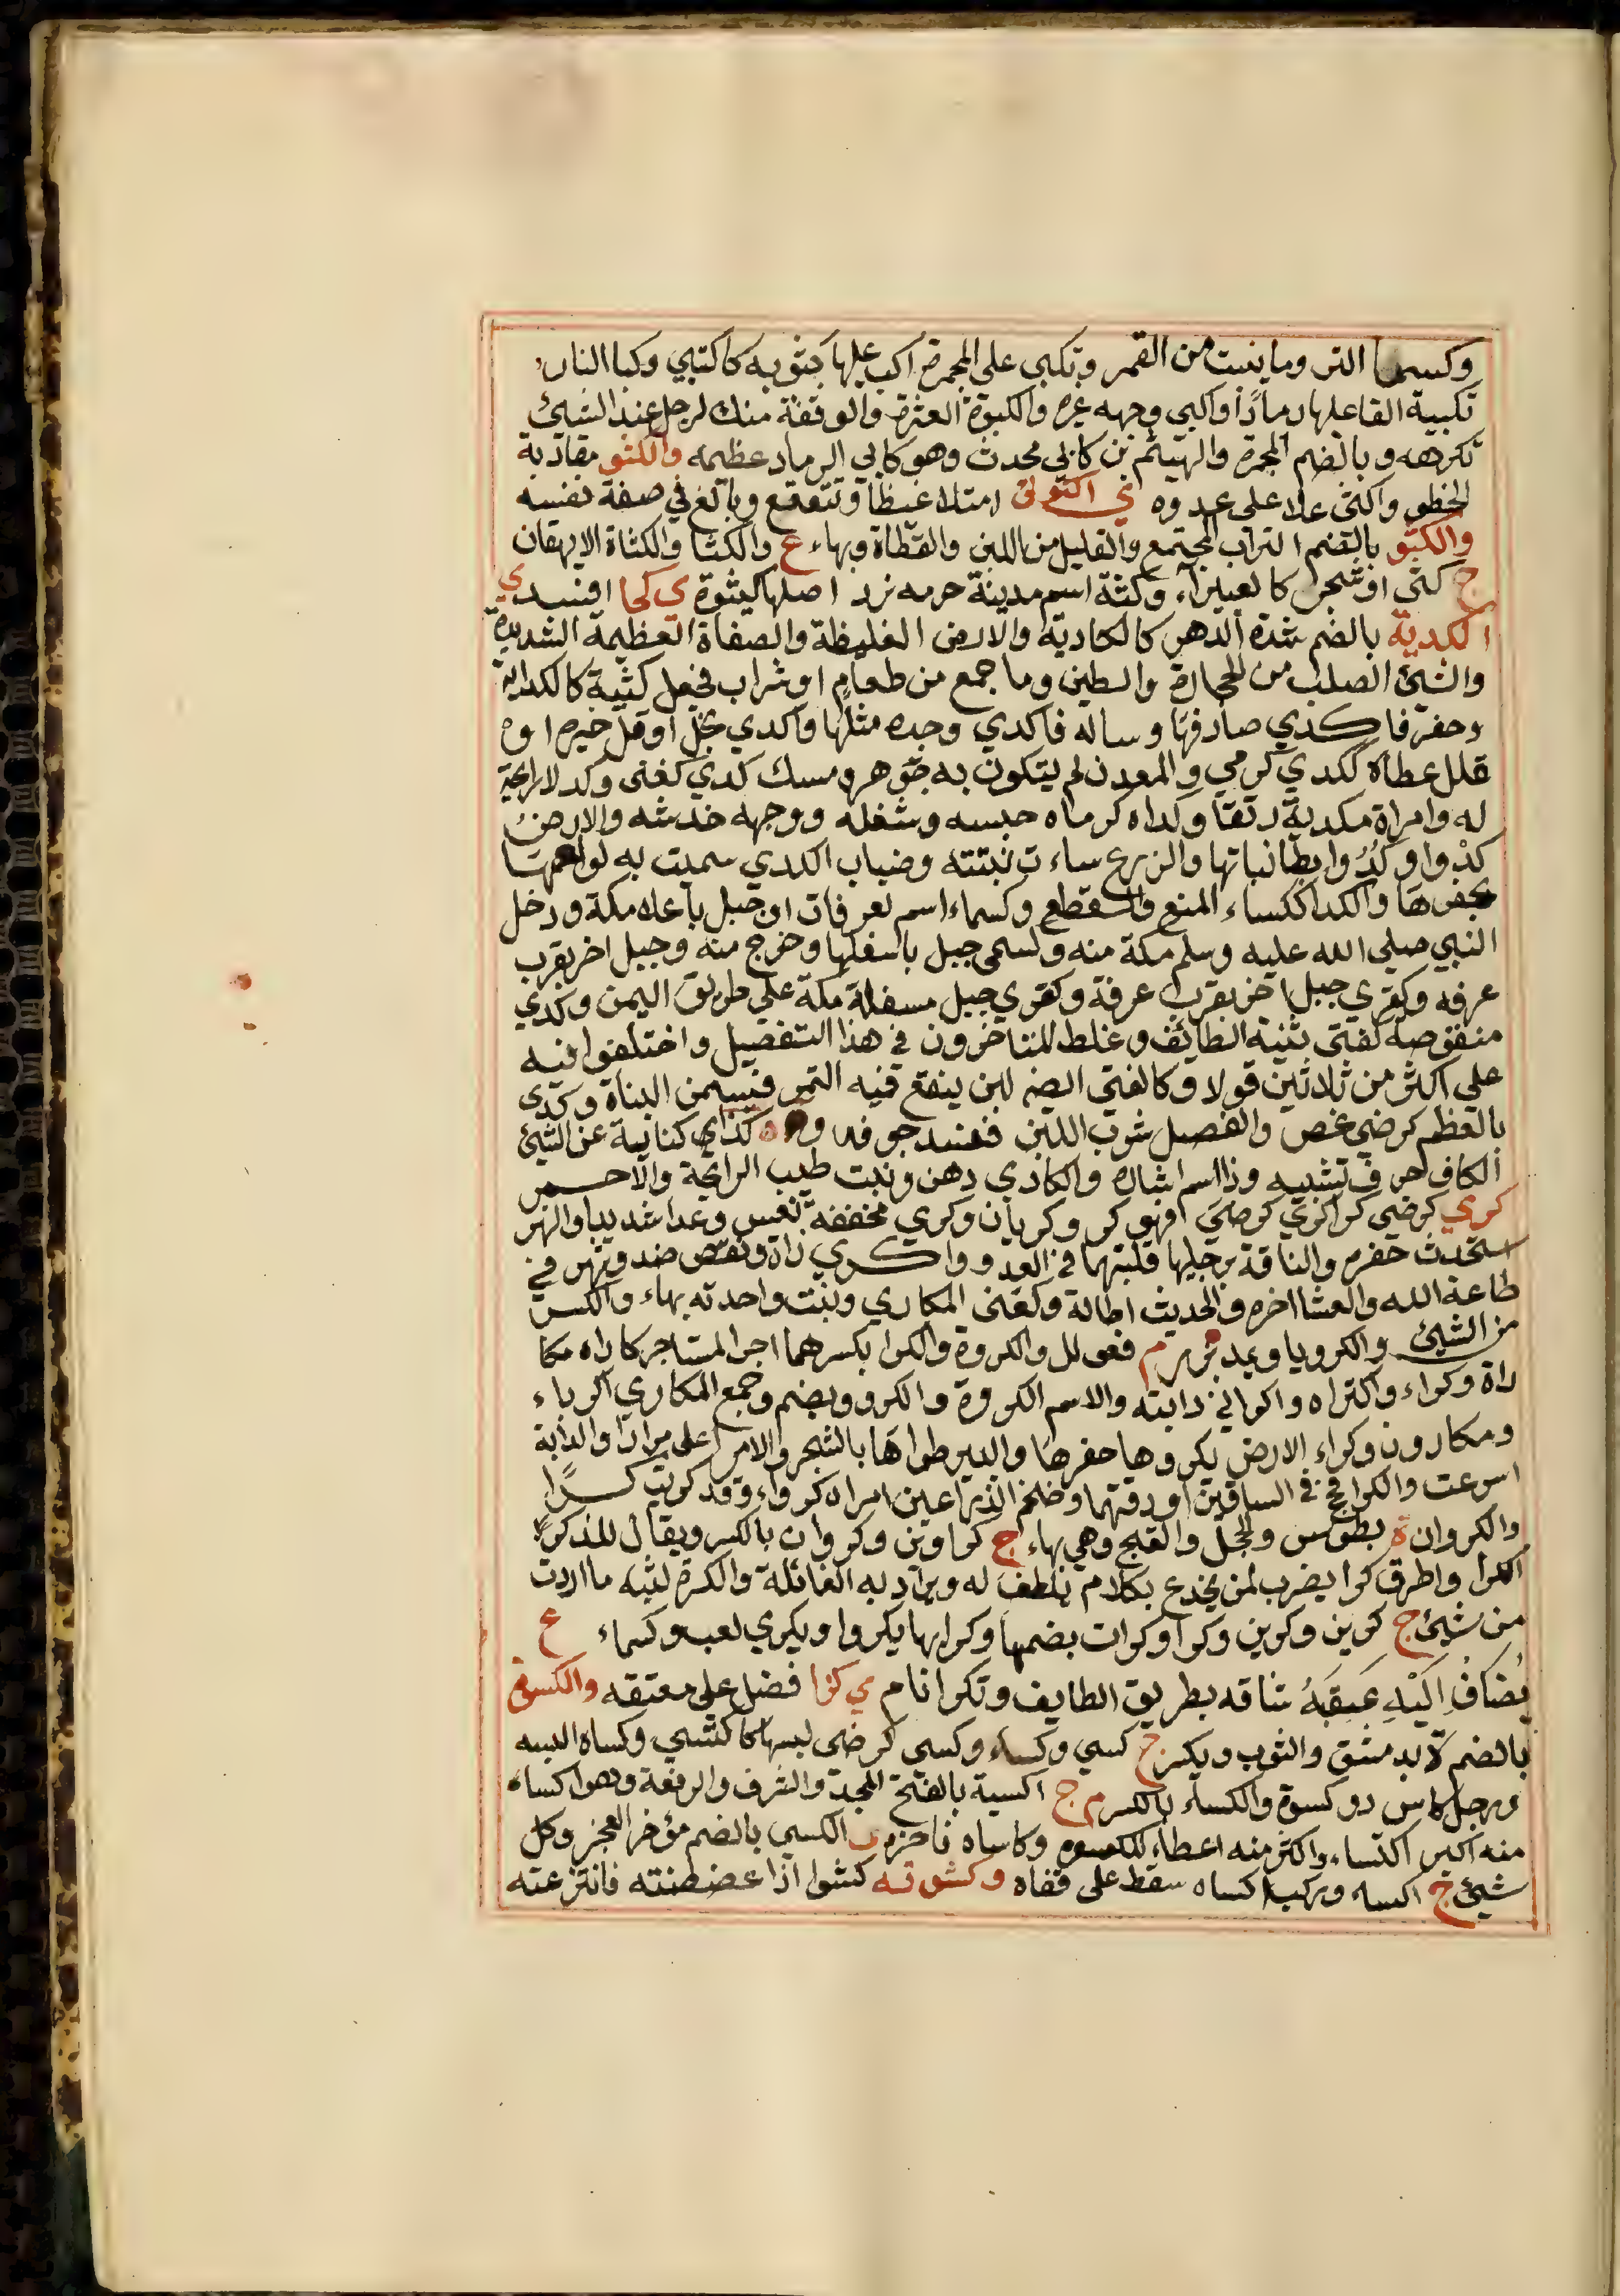 وكسما التر وما بنت من القمر وتكبي على المجمرة اكب عليها بثوبه كاكتبي وكبا النار
تكبية القا عليها رمادًا واكبي وجهه غره والكبوة العثرة والوقفة منك لرجل عند الشيئ
تكرهه وبالضم المجمرة والهيثم بن كابي محدث وهو كابي الرماد عظيمه والكتو مقاربة
الخطو واكتى علا على عدوه ي اكتوتى امتلا غيظا وتتعتع وبالغ في صفة نفسه
والكثو بالضم التراب المجتمع والقليل من اللبن والقطاة وبهاء ع والكثا والكثاة الايهقان
ج كثى او شجر كالغبيراء وكثة اسم مدينة حومه يزد اصلها كثوة ي كحا افسد ي
الكدية بالضم شدة الدهر كالكادية والارض الغليظة والصفاة العظيمة الشديدة
والشيئ الصلب من الحجارة والطين وما جمع من طعام او شراب فجعل كثبة كالكداية
وحفر فاكدي صادفها وساله فاكدي وجده مثلها واكدي بخل او قل خيره او
قلل عطاه ككدي كرمي والمعدن لم يتكون به جوهر ومسك كدي كغنى وكد لا رايحة
له وامراة مكدية رتقا وكداه كرماه حبسه وشغله ووجهه خدشه والارض
كدوا وكدوا ابطا نباتها والزرع ساءت نبتته وضباب الكدي سميت به لولعها
بحفرها والكدا ككساء المنع والقطع وكسماء اسم لعرفات او جبل باعلاه مكة ودخل
النبي صلي الله عليه وسلم مكة منه وكسمى جبل باسفلها وخرج منه وجبل اخر بقرب
عرفه وكقرى جبل اخر بقرب عرفة وكقري جبل مسفلة مكة علي طريق اليمن وكدي
منقوصه كفتى ثنية الطائف وغلط المتاخرون في هذا التفصيل واختلفوا فيه
علي اكثر من ثلاثين قولا وكالفتى الضم لبن ينقع فيه التمر فيسمن البناة وكدى
بالعظم كرضي غص والفصيل شرب اللبن ففسد جوفه و كذاي كناية عن الشيئ
الكاف حرف تشبيه وذا اسم اشارة والكاذي دهن ونبت طيب الرايحة والاحمر
كري كرضي كرا كري كرضي فهو كر وكريان وكري مخففة نعس وعدا شديدا والنهر
استحدث حفره والناقة برجليها قلبتهما في العدو واكري زاد ونقص ضد وسهر في
طاعة الله والعشا اخره والحديث اطاله وكغني المكاري ونبت واحدته بهاء والكس
من الشيئ والكرويا ويمد بزر م فعولل والكروة والكرا بكسرهما اجر المستاجر كاراه مكا
راة وكراء واكتراه واكراني دابته والاسم الكروة والكرو ويضم وجمع المكاري اكرياء
ومكارون وكراء الارض يكروها حفرها والبير طواها بالشجر والامر على مرادا والدابة
اسرعت والكرا فحج في الساقين او دقتهما وضخم الذراعين امراة كرواء وقد كريت كرا
والكروان ة بطوس والحجل والقبج وهي بهاء ج كراوين وكروان بالكسر ويقال للذكر
الكرا واطرق كرا يضرب لمن يخدع بكلام يلطف له ويراد به الغائلة والكرة لثبه ما اردت
من شيئ ج كرين وكرين وكرا وكرات بضمها وكرابها يكروا ويكري لعب وكسماء ع
يُضَافُ اِلَيْهِ عَقَبَهُ شاقه بطريق الطايف وتكرا نام ي كزا فضل علي معتقه والكسوة
بالضم ة بدمشق والثوب ويكسر ج كسي وكساء وكسي كرضى لبسها كاكتسي وكساه البسه
ورجل كاس ذو كسوة والكساء بالكسر م ج اكسية بالفتح المجد والشرف والرفعة وهو اكساء
منه اكبر اكتساء واكثر منه اعطاء للكسوة وكاساه فاخره ي الكسي بالضم مؤخر العجز وكل
شيئ ج اكساء وركب اكساه سقط على قفاه وكشوته كشوا اذا عضضنته فانتزعته